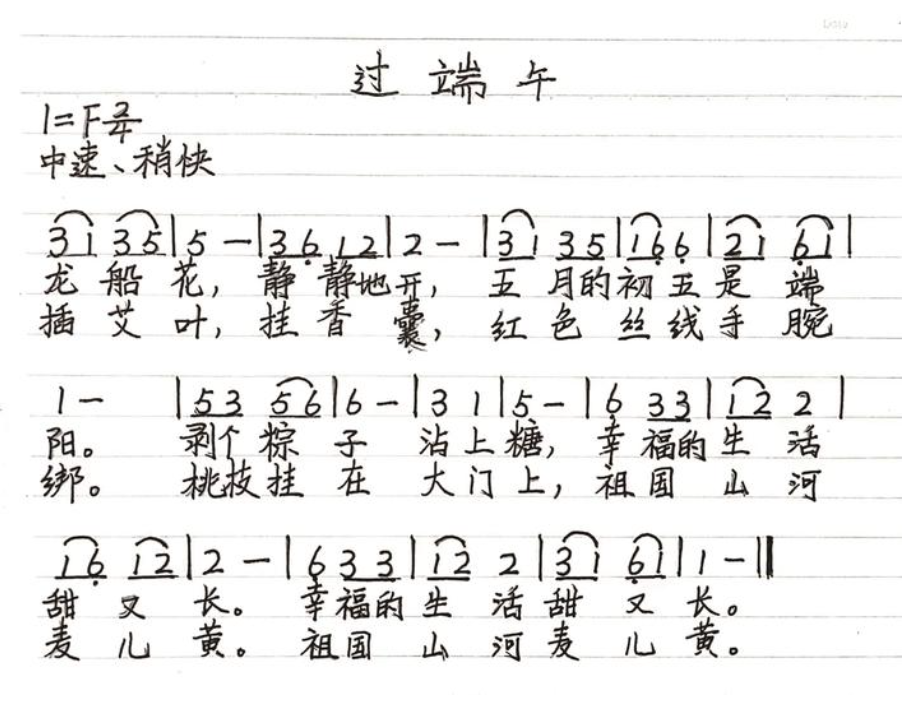 过端午
1=F 2/4
中速、稍快
31 35|5 -|36 12|2 -|31 35|166|21 61|
龙船花，静静地开，五月的初五是端
插艾叶，挂香囊，红色丝线手腕
1 - |53 56|6 -|3 1|5 -|6 33|12 2|
阳。剥个粽子沾上糖，幸福的生活
绑。桃枝挂在大门上，祖国山河
16 12|2 -|6 33|12 2|31 61|1 -‖
甜又长。幸福的生活甜又长。
麦儿黄。祖国山河麦儿黄。